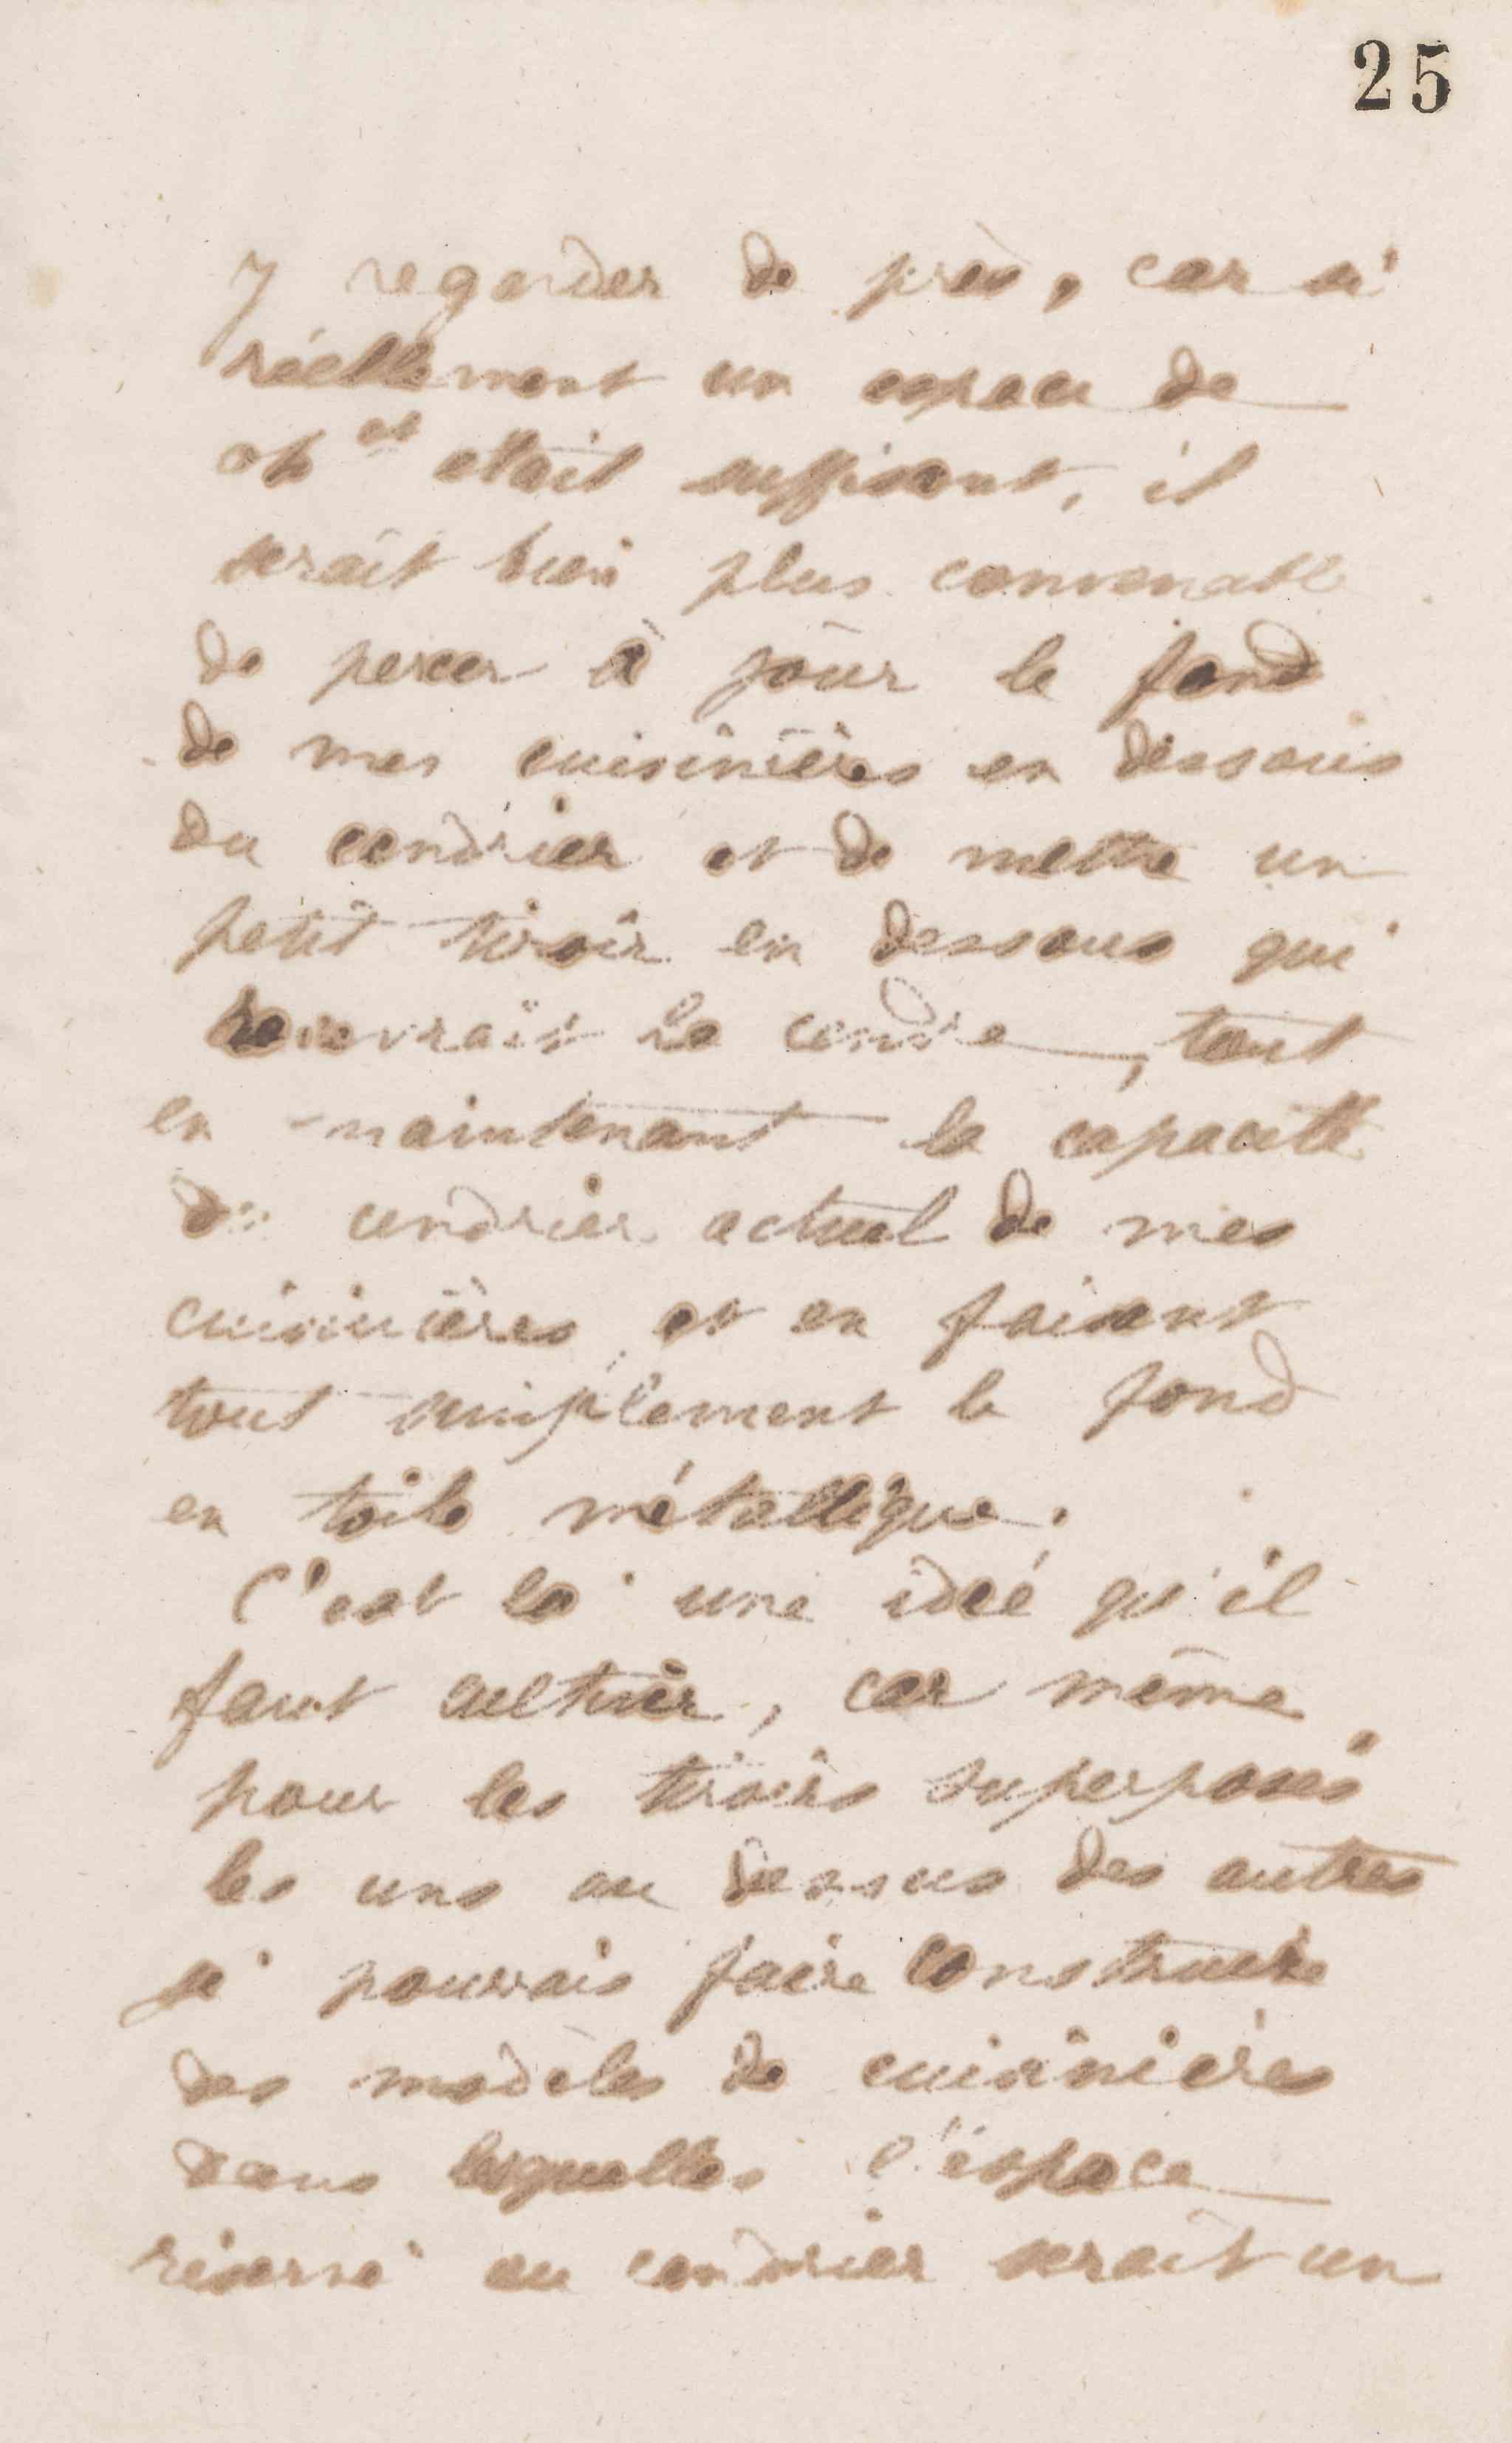 25
y regarder de près, car si
réellement un espace de
était suffisant, il
serait bien plus convenable
de percer à jour le fond
de mes cuisinières en dessous
du cendrier et de mettre un
petit tiroir en dessous qui
recevrait la cendre, tout
en maintenant la capacité
du cendrier actuel de mes
cuisinières et en faisant
tout simplement le fond
en toile métallique.
C'est là une idée qu'il
faut cultiver, car même
pour les tiroirs superposés
les uns au dessus des autres
je pourrais faire construire
des modèles de cuisinières
dans lesquelles l'espace
réservé au cendrier serait un